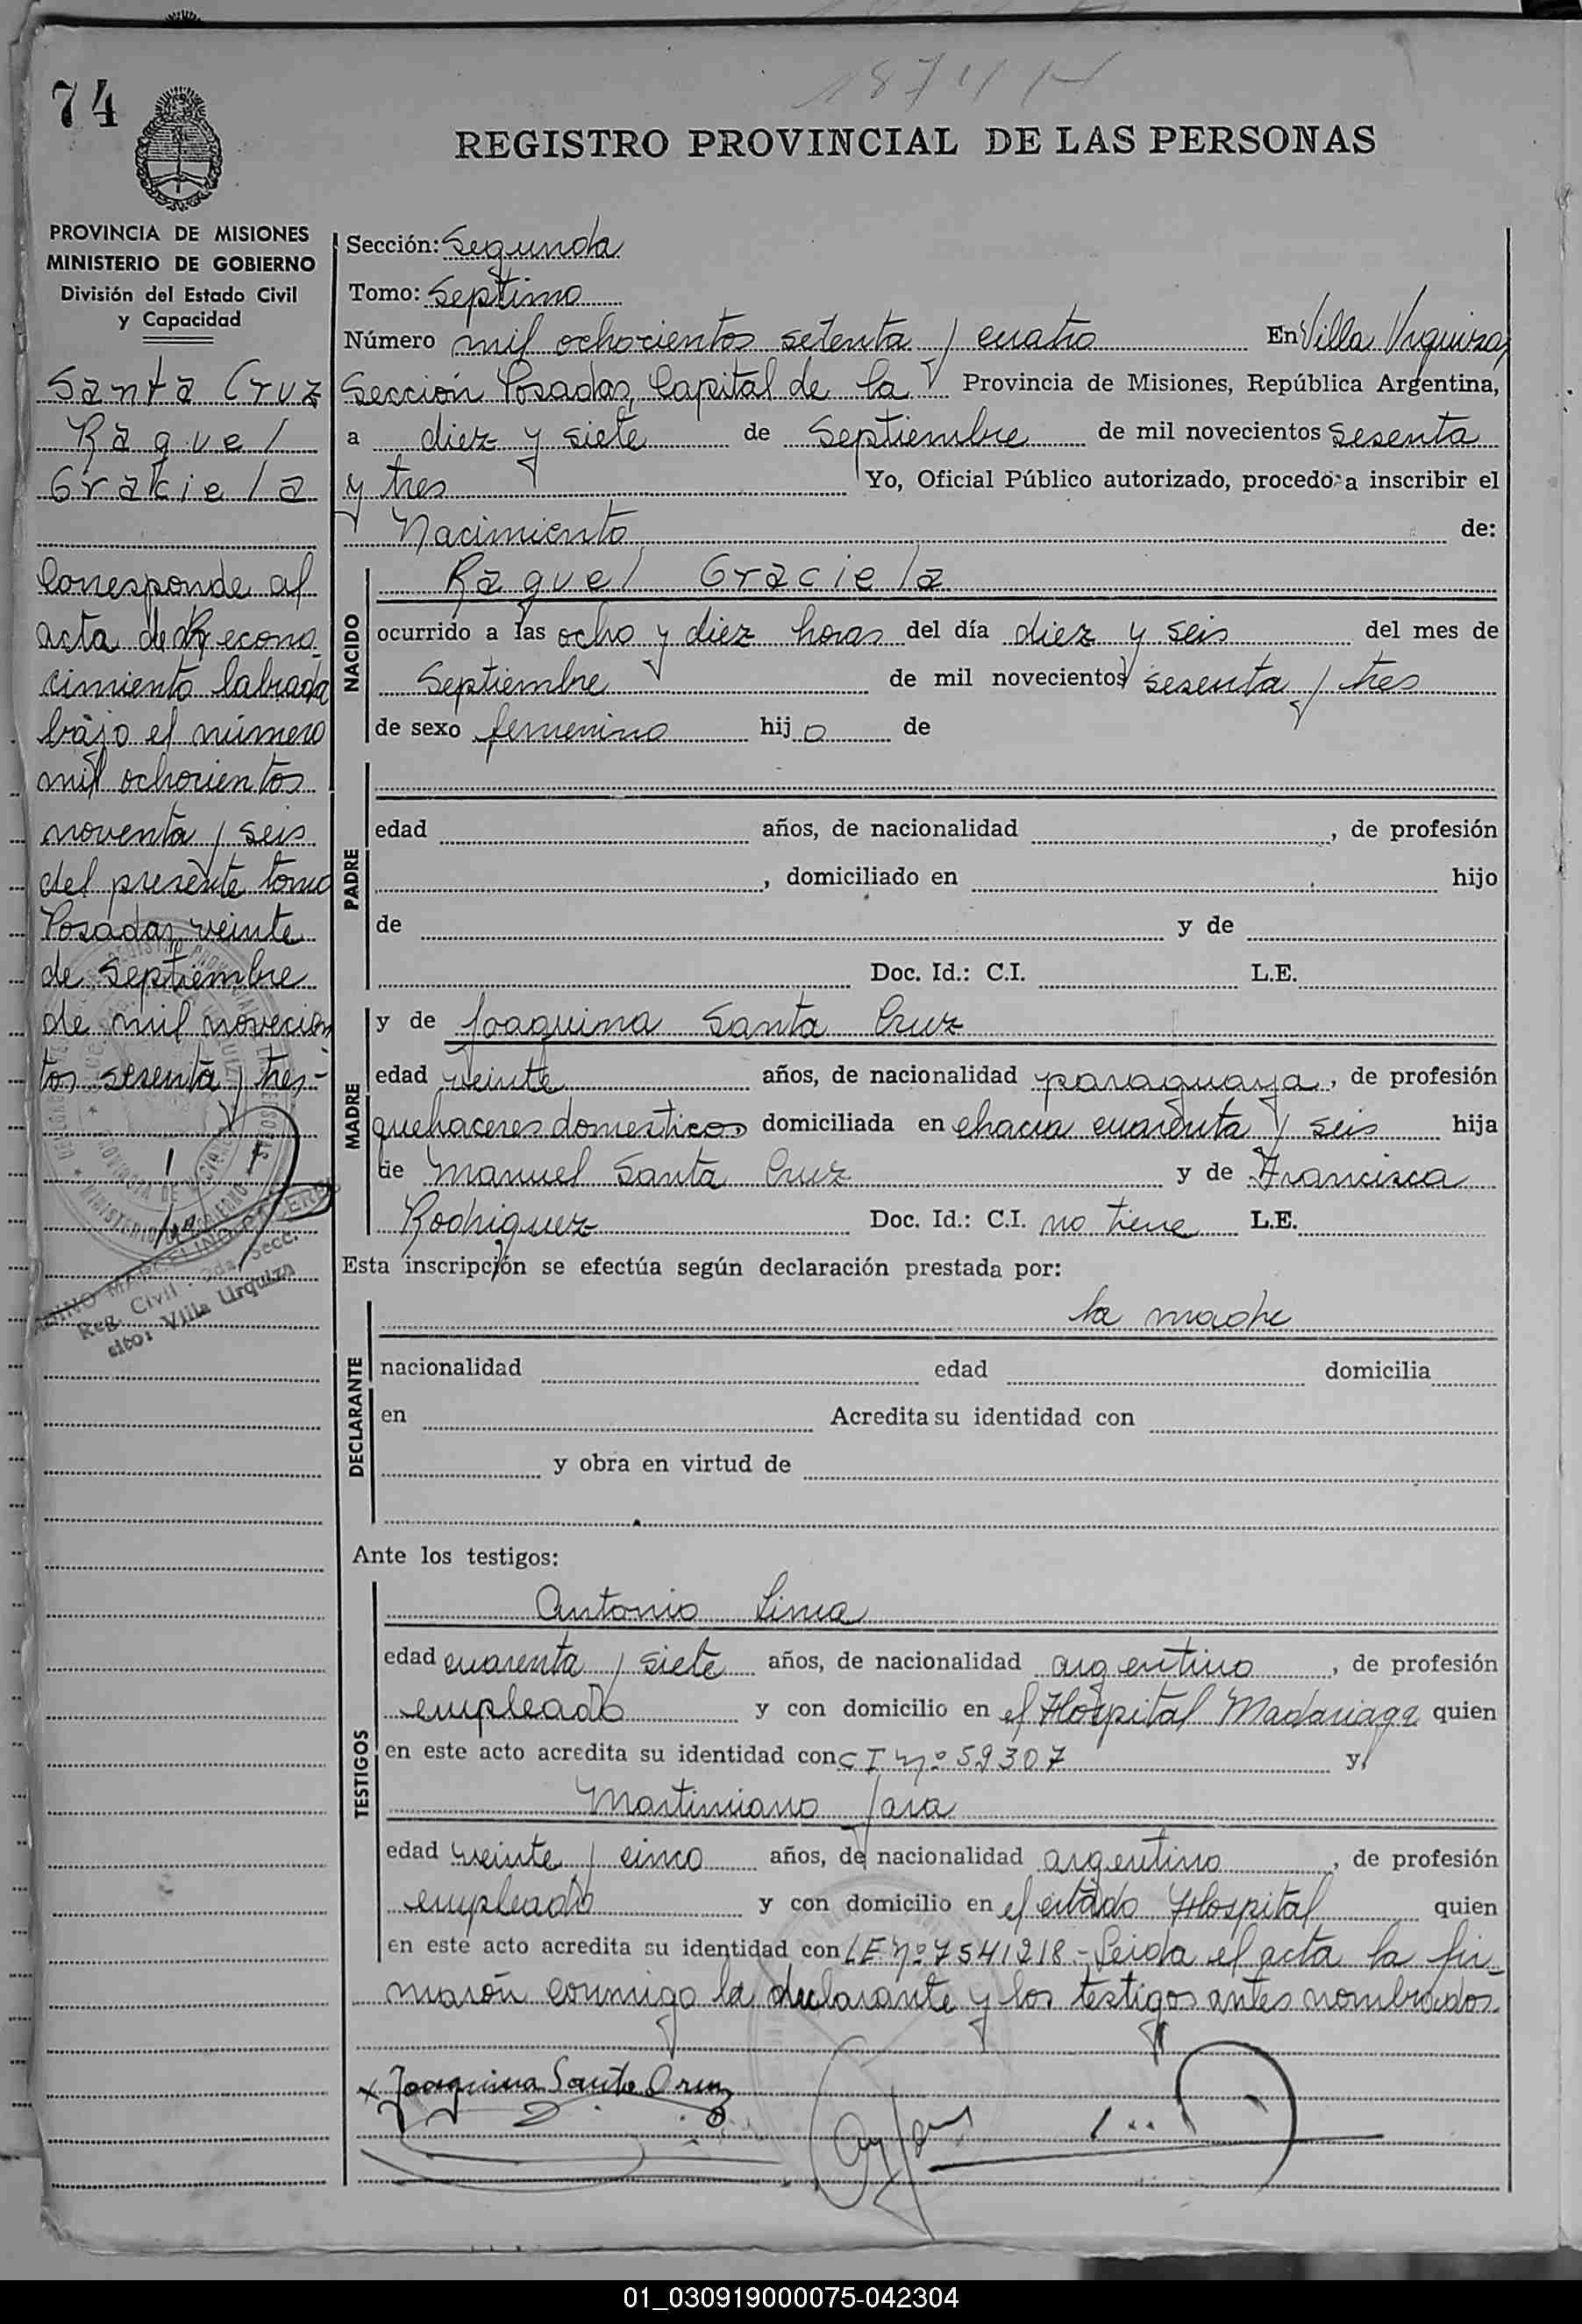 1874
74
REGISTRO PROVINCIAL DE LAS PERSONAS
PROVINCIA DE MISIONES
MINISTERIO DE GOBIERNO
División del Estado Civil
y Capacidad
Santa Cruz
Raquel
Graciela
Corresponde al
acta de Recono-
cimiento labrada
bajo el número
mil ochocientos
noventa y seis
del presente tomo
Posadas, veinte
de Septiembre
de mil novecien-
tos sesenta y tres-
Reg. Civil - 2da. Secc.
sito: Villa Urquiza
Sección: Segunda
Tomo: Septimo
Número mil ochocientos setenta y cuatro En Villa Urquiza,
Sección Posadas, Capital de la Provincia de Misiones, República Argentina,
a diez y siete de Septiembre de mil novecientos sesenta
y tres Yo, Oficial Público autorizado, procedo a inscribir el
Nacimiento de:
NACIDO
Raquel Graciela
ocurrido a las ocho y diez horas del día diez y seis del mes de
Septiembre de mil novecientos sesenta y tres
de sexo femenino hij o de
PADRE
edad años, de nacionalidad , de profesión
, domiciliado en hijo
de y de
Doc. Id.: C.I. L.E.
MADRE
y de Joaquina Santa Cruz
edad veinte años, de nacionalidad paraguaya, de profesión
quehaceres domesticos, domiciliada en chacra cuarenta y seis hija
de Manuel Santa Cruz y de Francisca
Rodriguez Doc. Id.: C.I. no tiene L.E.
Esta inscripción se efectúa según declaración prestada por:
DECLARANTE
la madre
nacionalidad edad domicilia
en Acredita su identidad con
y obra en virtud de
Ante los testigos:
TESTIGOS
Antonio Lima
edad cuarenta y siete años, de nacionalidad argentino, de profesión
empleado y con domicilio en el Hospital Madariaga quien
en este acto acredita su identidad con C I nº 59307 y
Martimiano Jara
edad veinte y cinco años, de nacionalidad argentino, de profesión
empleado y con domicilio en el citado Hospital quien
en este acto acredita su identidad con LE Nº 7541218.- Leida el acta la fir-
maron conmigo la declarante y los testigos antes nombrados.
x Joaquina Santa Cruz
01_030919000075-042304